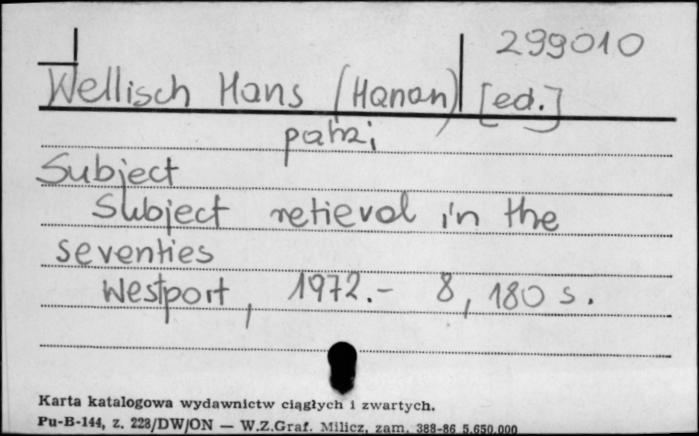 299010
Wellisch Hans (Hanan) [ed.]
patrz:
Subject
Subject retieval in the
seventies
Westport, 1972.- 8, 180 s.
Karta katalogowa wydawnictw ciągłych i zwartych.
Pu-B-144, z. 228/DW/ON — W.Z.Graf. Milicz, zam. 388-86 5.650.000